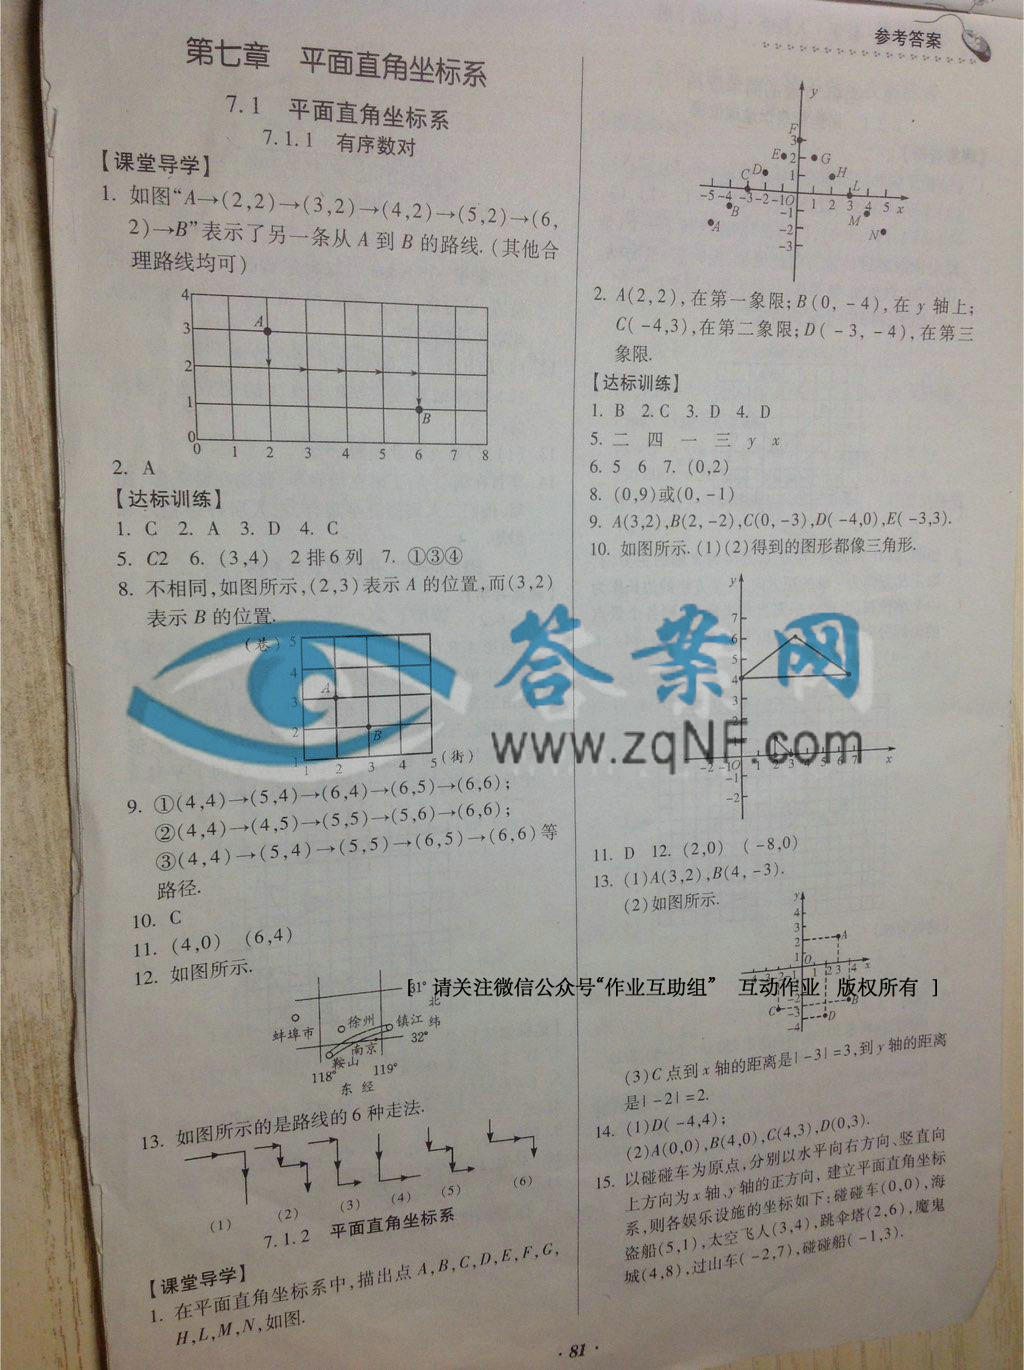 参考答案
第七章 平面直角坐标系
7.1 平面直角坐标系
7.1.1 有序数对
【课堂导学】
1. 如图“A→(2,2)→(3,2)→(4,2)→(5,2)→(6,
2)→B”表示了另一条从 A 到 B 的路线.(其他合
理路线均可)
4
3
2
1
0
A
B
0 1 2 3 4 5 6 7 8
2. A
【达标训练】
1. C 2. A 3. D 4. C
5. C2 6. (3,4) 2排6列 7. ①③④
8. 不相同,如图所示,(2,3)表示 A 的位置,而(3,2)
表示 B 的位置.
(巷) 5
4
3
2
1
A
B
1 2 3 4 5 (街)
9. ①(4,4)→(5,4)→(6,4)→(6,5)→(6,6);
②(4,4)→(4,5)→(5,5)→(5,6)→(6,6);
③(4,4)→(5,4)→(5,5)→(6,5)→(6,6)等
路径.
10. C
11. (4,0) (6,4)
12. 如图所示.
31°
北
纬
32°
蚌埠市
徐州
镇江
南京
鞍山
118° 119°
东 经
13. 如图所示的是路线的6种走法.
(1) (2) (3) (4) (5) (6)
7.1.2 平面直角坐标系
【课堂导学】
1. 在平面直角坐标系中,描出点 A,B,C,D,E,F,G,
H,L,M,N,如图.
y
F
3
E 2 G
C D 1 H L
-5 -4 -3 -2 -1 O 1 2 3 4 5 x
B -1 M
A -2 N
-3
2. A(2,2),在第一象限;B(0,-4),在 y 轴上;
C(-4,3),在第二象限;D(-3,-4),在第三
象限.
【达标训练】
1. B 2. C 3. D 4. D
5. 二 四 一 三 y x
6. 5 6 7. (0,2)
8. (0,9)或(0,-1)
9. A(3,2),B(2,-2),C(0,-3),D(-4,0),E(-3,3).
10. 如图所示.(1)(2)得到的图形都像三角形.
y
7
6
5
4
3
2
-2 -1 O 1 2 3 4 5 6 7 x
-1
-2
11. D 12. (2,0) (-8,0)
13. (1)A(3,2),B(4,-3).
(2)如图所示.
y
4
3
2
1
A
O
1 2 3 4 x
B
C
D
-3
-4
(3)C 点到 x 轴的距离是|-3|=3,到 y 轴的距离
是|-2|=2.
14. (1)D(-4,4);
(2)A(0,0),B(4,0),C(4,3),D(0,3).
15. 以碰碰车为原点,分别以水平向右方向、竖直向
上方向为 x 轴、y 轴的正方向,建立平面直角坐标
系,则各娱乐设施的坐标如下:碰碰车(0,0),海
盗船(5,1),太空飞人(3,4),跳伞塔(2,6),魔鬼
城(4,8),过山车(-2,7),碰碰船(-1,3).
· 81 ·
答案网
www.zqNF.com
[ 请关注微信公众号“作业互助组” 互动作业 版权所有 ]